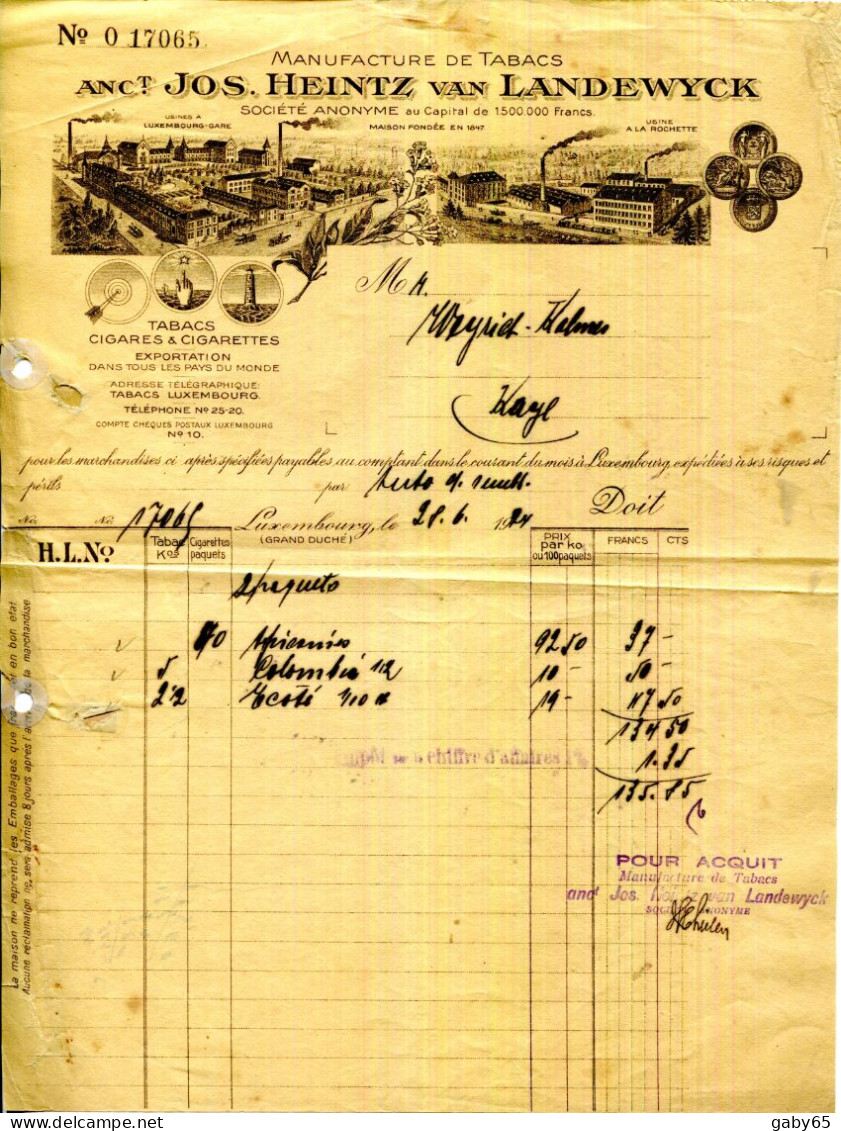 No 0 17065
MANUFACTURE DE TABACS
ANCT. JOS. HEINTZ VAN LANDEWYCK
SOCIÉTÉ ANONYME au Capital de 1500.000 Francs.
USINES A
LUXEMBOURG-GARE
MAISON FONDÉE EN 1847.
USINE
A LA ROCHETTE
M
Weyrich-Kelmes
Kayl
TABACS
CIGARES & CIGARETTES
EXPORTATION
DANS TOUS LES PAYS DU MONDE
ADRESSE TÉLÉGRAPHIQUE:
TABACS LUXEMBOURG.
TÉLÉPHONE No 25-20.
COMPTE CHEQUES POSTAUX LUXEMBOURG
No 10.
pour les marchandises ci après spécifiées payables au comptant dans le courant du mois à Luxembourg, expédiées à ses risques et
périls par auto
Doit
No. No. 17065 Luxembourg, le 28.6. 1924
(GRAND DUCHÉ)
H.L.No
Tabac Kos
Cigarettes paquets
PRIX par ko ou 100 paquets
FRANCS CTS
2 paquets
40 92 50 37 -
5 Colombié 1/2 10 - 50 -
2 1/2 1/10 19 - 47 50
134 50
Impôt sur le chiffre d'affaires 1%
1.35
135.85
POUR ACQUIT
Manufacture de Tabacs
anct Jos. Heintz van Landewyck
SOCIÉTÉ ANONYME
La maison ne reprend les Emballages que franco et en bon état.
Aucune réclamation ne sera admise 8 jours après l'arrivée de la marchandise
gaby65